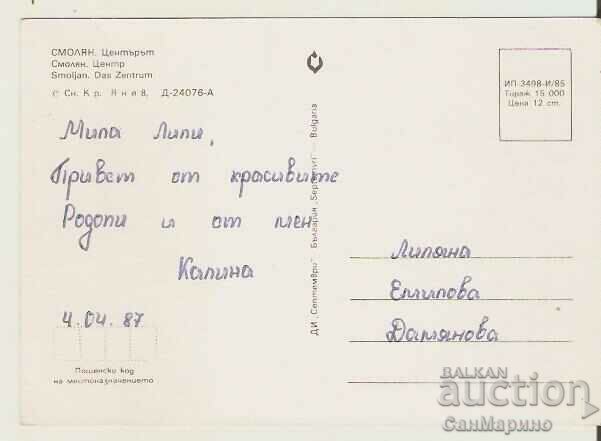 СМОЛЯН. Центърът
Смолян. Центр
Smoljan. Das Zentrum
© Сн. Кр. Янев, Д-24076-А
ИП 3498-И/85
Тираж 15 000
Цена 12 ст.
Мила Лили,
Привет от красивите
Родопи и от мен
Калина
4.04.87
Пощенски код
на местоназначението
ДИ „Септември" България „Septemvri" — Bulgaria
Лиляна
Емилова
Дамянова
BALKAN
auction
СанМарино